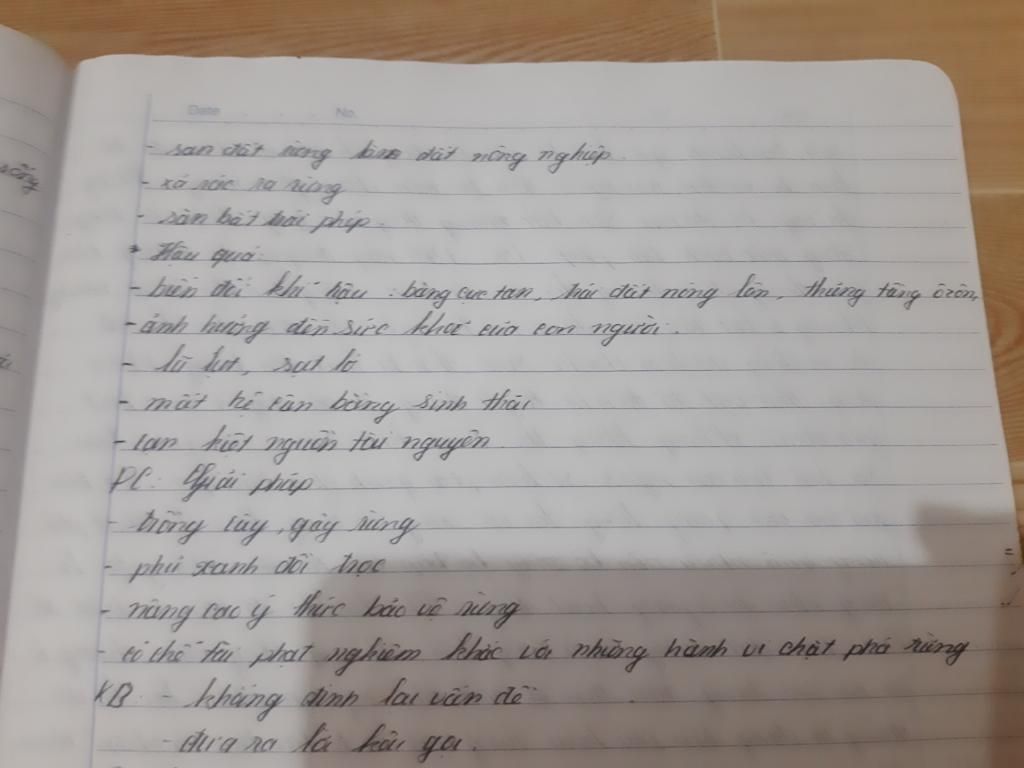 Date No.
sống
- san đất rừng làm đất nông nghiệp.
- xả rác ra rừng
- săn bắt trái phép.
* Hậu quả:
- biến đổi khí hậu : băng cực tan, trái đất nóng lên, thủng tầng ôzôn,
- ảnh hưởng đến sức khoẻ của con người.
- lũ lụt, sụt lở
- mất hệ cân bằng sinh thái
- cạn kiệt nguồn tài nguyên
PC: Giải pháp
- trồng cây, gây rừng
- phủ xanh đồi trọc
- nâng cao ý thức bảo vệ rừng
- có chế tài phạt nghiêm khắc với những hành vi chặt phá rừng
KB: - khẳng định lại vấn đề
- đưa ra lời kêu gọi.